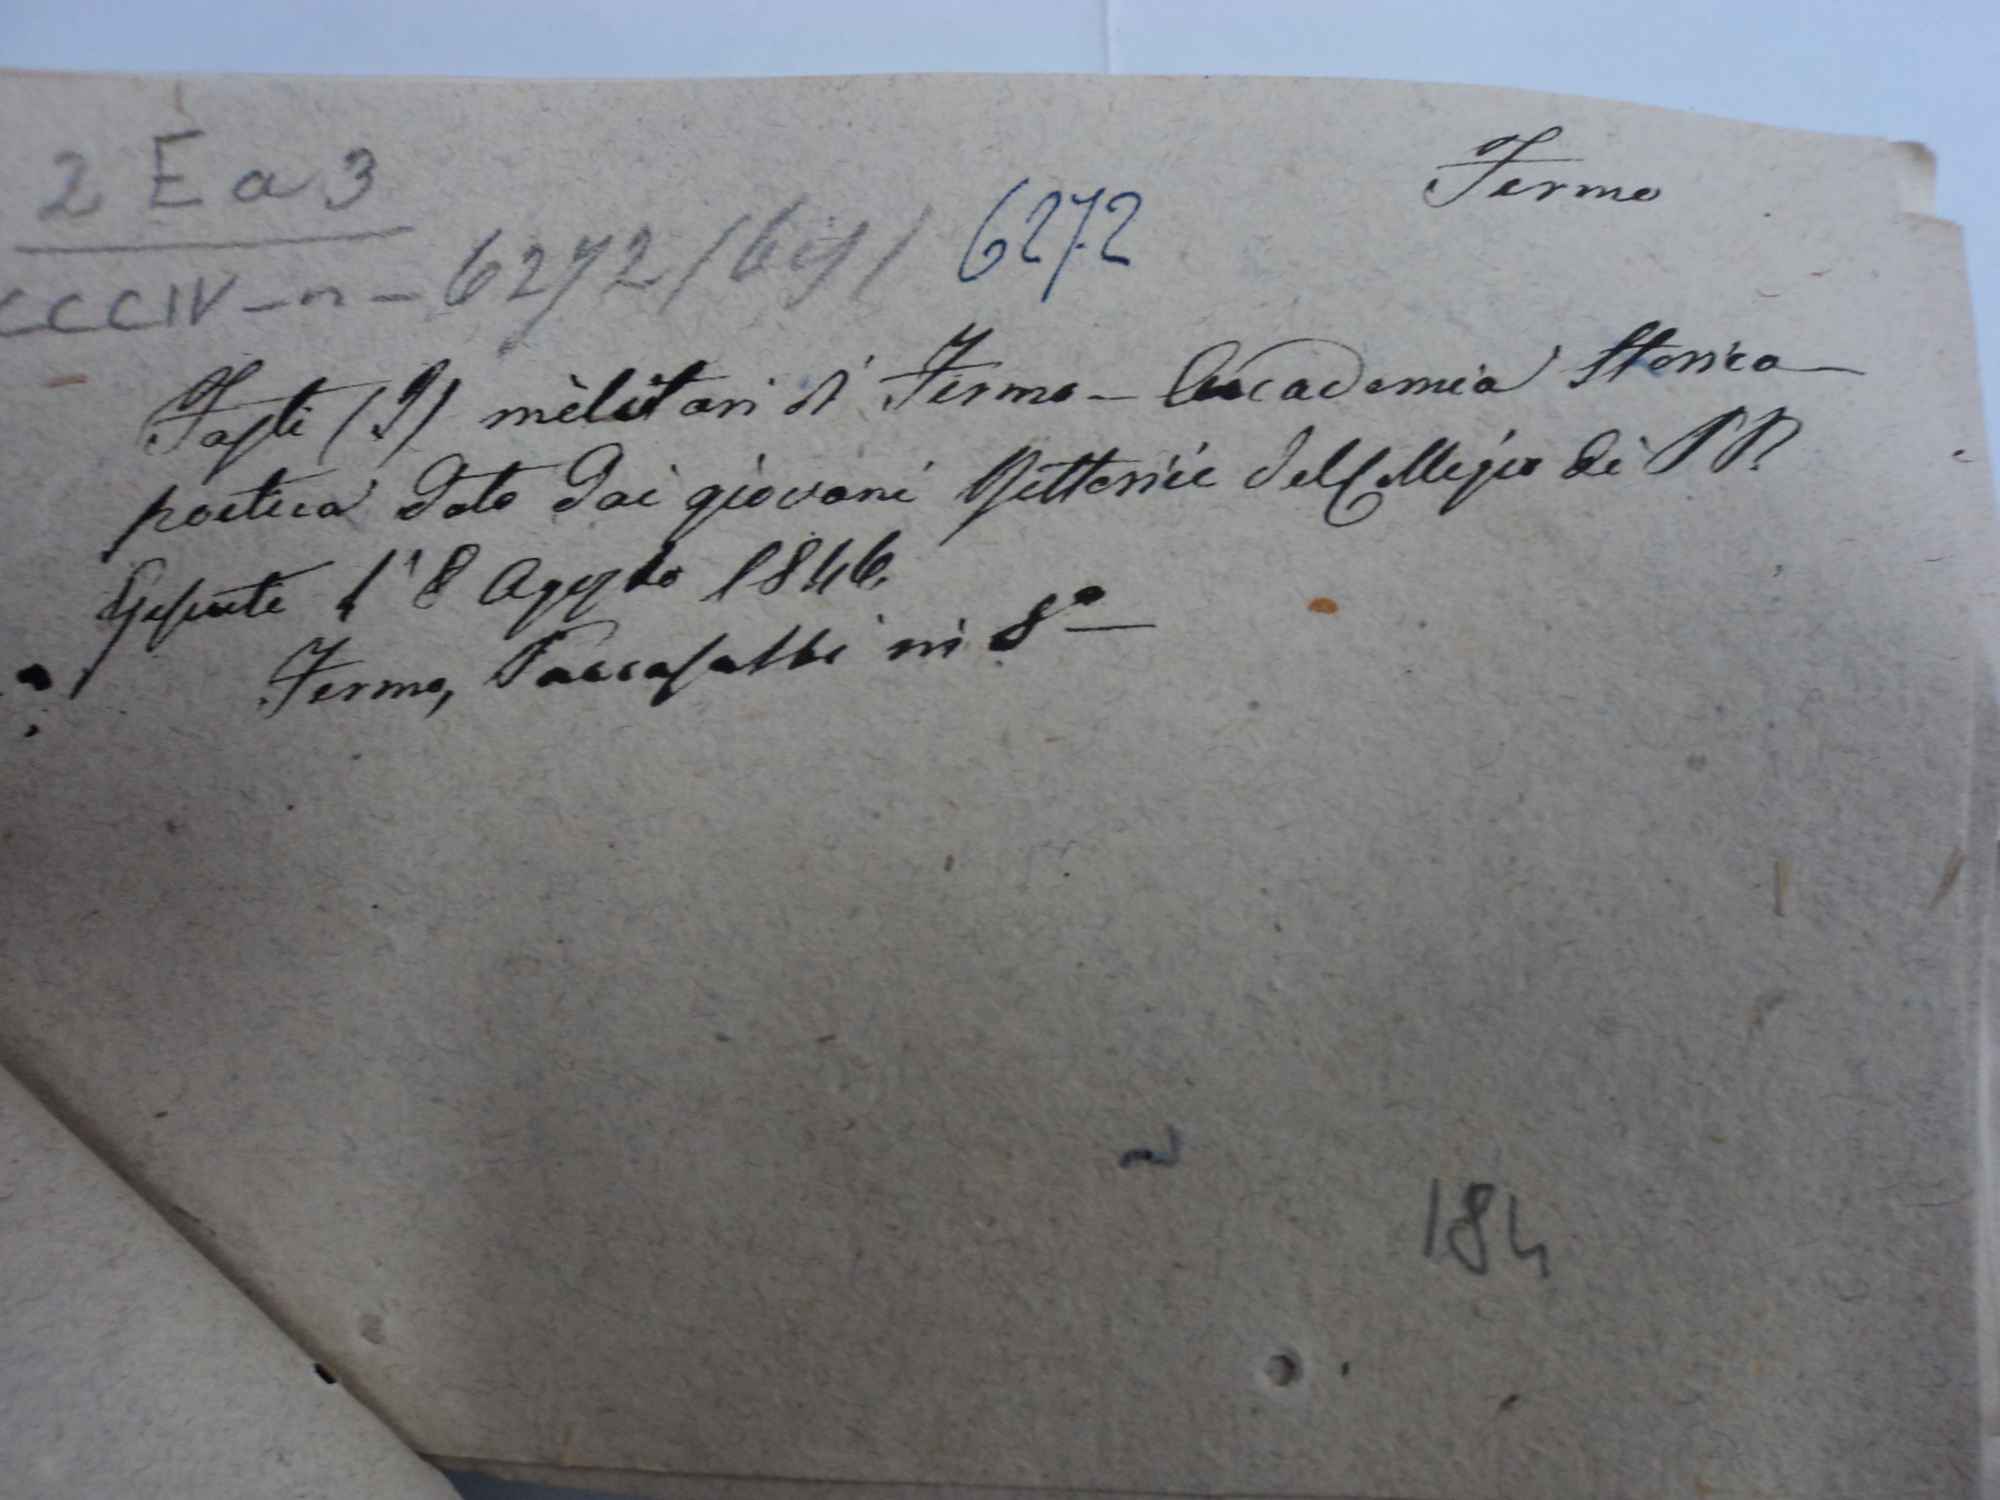 2 E a 3
Fermo
CCCIV - n - 6272 (69) 6272
Fasti (I) militari di Fermo - Accademia Storico -
poetica data dai giovani Rettorici del Collegio dei PP.
Gesuiti l' 8 Agosto 1846.
Fermo, Paccasassi in 8º -
184